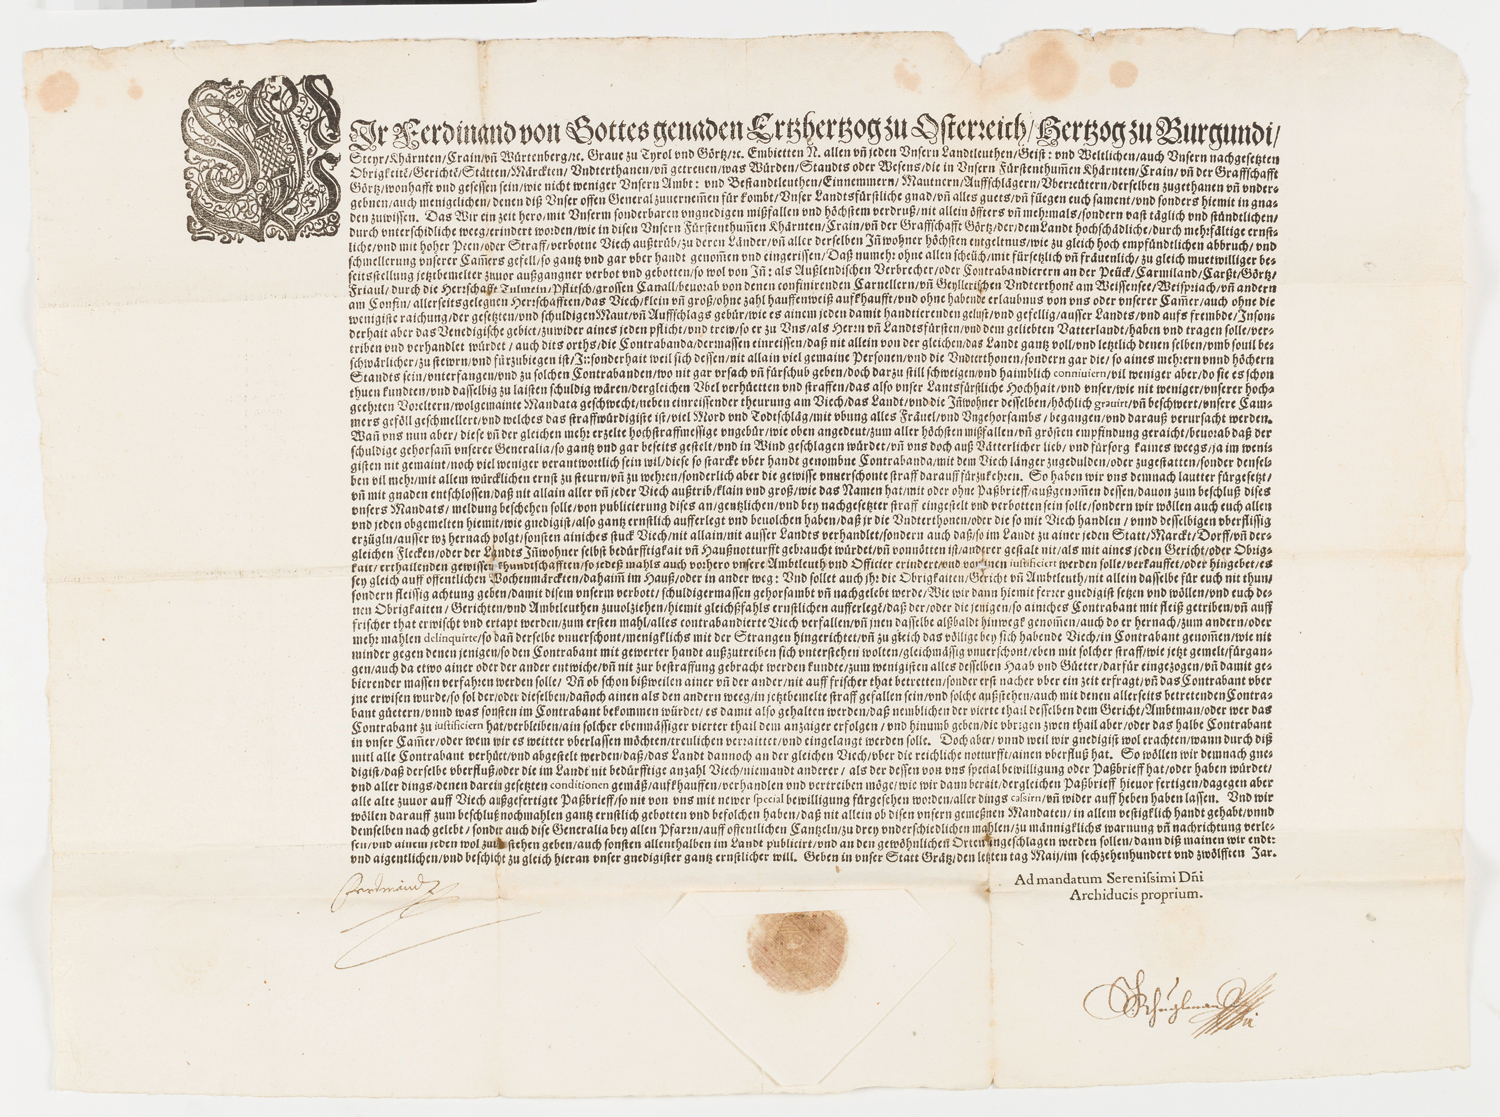 WIr Ferdinand von Gottes genaden Ertzhertzog zu Osterreich/ Hertzog zu Burgundi/
Steyr/Khärnten/Crain/vñ Würtenberg/ꝛc. Graue zu Tyrol vnd Görtz/ꝛc. Embietten N. allen vñ jeden Vnsern Landtleuthen/Geist: vnd Weltlichen/auch Vnsern nachgesetzten
Obrigkeitẽ/Gerichtẽ/Stätten/Märckten/ Vndterthanen/vñ getreuen/was Würden/Standts oder Wesens/die in Vnsern Fürstenthumẽn Khärnten/Crain/vñ der Graffschafft
Görtz/wonhafft vnd gesessen sein/wie nicht weniger Vnsern Ambt: vnd Bestandtleuthen/Einnemmern/ Mautnern/Auffschlägern/Vberreütern/derselben zugethanen vñ vnder-
gebnen/auch menigelichen/denen diß Vnser offen General zuuernem̃en für kombt/Vnser Landtsfürstliche gnad/vñ alles guets/vñ fliegen euch sament/vnd sonders hiemit in gna-
den zuwissen. Das Wir ein zeit hero/mit Vnserm sonderbaren vngnedigen mißfallen vnd höchstem verdruß/nit allein öffters vñ mehrmals/sondern vast täglich vnd stündtlichen/
durch vnterschidliche weeg/erindert worden/wie in disen Vnsern Fürstenthum̃en Khärnten/Crain/vñ der Graffschafft Görtz/der/dem Landt hochschädliche/durch mehrfältige ernst-
liche/vnd mit hoher Peen/oder Straff/verbotne Viech außtrüb/zu deren Länder/vñ aller derselben In̄wohner höchsten entgeltnus/wie zu gleich hoch empfündtlichen abbruch/vnd
schmellerung vnserer Cam̃ers gefell/so gantz vnd gar vber handt genom̃en vnd eingerissen/Daß numehr ohne allen scheüch/mit fürsetzlich vñ fräuenlich/zu gleich muetwilliger be-
seitsstellung jetzbemelter zuuor außgangner verbot vnd gebotten/so wol von In̄: als Außlendischen Verbrecher/oder Contrabandierern an der Peück/Carmiland/Carßt/Görtz/
Friaul/durch die Herrschafft Tulmein/Pflitsch/grossen Canall/beuorab von denen confinirenden Carnellern/vñ Geyllerischen Vndterthonẽ am Weissensee/Weispriach/vñ andern
am Confin/allerseits gelegnen Herrschafften/das Viech/klein vñ groß/ohne zahl hauffenweiß auffkaufft/vnd ohne habende erlaubnus von vns oder vnserer Cam̃er/auch ohne die
wenigiste raichung/der gesetzten/vnd schuldigen Maut/vñ Auffschlags gebür/wie es ainem jeden damit handtierenden gelust/vnd gefellig/ausser Landts/vnd auffs frembde/Inson-
derhait aber das Venedigische gebiet/zuwider aines jeden pflicht/vnd trew/so er zu Vns/als Herrn vñ Landtsfürsten/vnd dem geliebten Vatterlandt/haben vnd tragen solle/ver-
triben vnd verhandlet würdet/auch dits orths/die Contrabanda/dermassen einreissen/daß nit allein von der gleichen/das Landt gantz voll/vnd letzlich denen selben/vmb souil bes-
schwärlicher/zu stewrn/vnd fürzubiegen ist/Insonderhait weil sich dessen/nit allain viel gemaine Personen/vnd die Vndterthonen/sondern gar die/so aines mehrern vnnd höchern
Standts sein/vnterfangen/vnd zu solchen Contrabanden/wo nit gar vrsach vñ fürschub geben/doch darzu still schweigen/vnd haimblich conniuiern/vil weniger aber/do sie es schon
thuen kundten/vnd dasselbig zu laisten schuldig wären/dergleichen Vbel verhüetten vnd straffen/das also vnser Lantsfürstliche Hochhait/vnd vnser/wie nit weniger/vnserer hoch-
geehrten Voreltern/wolgemainte Mandata geschwecht/neben einreissender theurung am Viech/das Landt/vnd die In̄wohner desselben/höchlich grauirt/vñ beschwert/vnsere Cam-
mers gefoll geschmellert/vnd welches das straffwürdigiste ist/viel Mord vnd Todtschläg/mit vbung alles Fräuel/vnd Vngehorsambs/begangen/vnd darauß verursacht werden.
Wañ vns nun aber/diese vñ der gleichen mehr erzelte hochstraffmessige vngebür/wie oben angedeut/zum aller höchsten mißfallen/vñ grösten empfindung geraicht/beuorab daß der
schuldige gehorsam̃ vnserer Generalia/so gantz vnd gar beseits gestelt/vnd in Wind geschlagen würdet/vñ vns doch auß Vätterlicher lieb/vnd fürsorg kaines weegs/ja im wenis
gisten nit gemaint/noch viel weniger verantwortlich sein wil/diese so starcke vber handt genombne Contrabanda/mit dem Viech länger zugedulden/oder zugestatten/sonder densel-
ben vil mehr/mit allem würcklichen ernst zu steurn/vñ zu wehren/sonderlich aber die gewisse vnuerschonte straff darauff fürzukehren. So haben wir vns demnach lautter fürgesetzt/
vñ mit gnaden entschlossen/daß nit allain aller vñ jeder Viech außtrib/klain vnd groß/wie das Namen hat/mit oder ohne Paßbrieff/außgenom̃en dessen/dauon zum beschluß dises
vnsers Mandats/meldung beschehen solle/von publicierung dises an/gentzlichen/vnd bey nachgesetzter straff eingestelt vnd verbotten sein solle/sondern wir wöllen auch euch allen
vnd jeden obgemelten hiemit/wie gnedigist/also gantz ernstlich aufferlegt vnd beuolchen haben/daß jr die Vndterthonen/oder die so mit Viech handlen/vnnd desselbigen vberflissig
erzügln/ausser wz hernach volgt/sonsten ainiches stuck Viech/nit allain/nit ausser Landts verhandlet/sondern auch daß/so im Landt zu ainer jeden Statt/Marckt/Dorff/vñ der-
gleichen Flecken/oder der Landts In̄wohner selbst bedürfftigkait vñ Haußnotturfft gebraucht würdet/vñ vonnöten ist/anderer gestalt nit/als mit aines jeden Gericht/oder Obrig-
kait/erthailenden gewissen khundtschafften/so jedeß mahls auch vorhero vnsere Ambtleuth vnd Officier erindert/vnd von jnen iustificiert werden solle/verkauffet/oder hingebet/es
sey gleich auff offentlichen Wochenmärckten/dahaim̃ im Hauß/oder in ander weg: Vnd sollet auch jh: die Obrigkaiten/Gericht vñ Ambtleuth/nit allein dasselbe für euch nit thun/
sondern fleissig achtung geben/damit disem vnserm verbott/schuldigermassen gehorsambt vñ nachgelebt werde/Wie wir dann hiemit ferrer gnedigist setzen vnd wöllen/vnd euch de-
nen Obrigkaiten/Gerichten/vnd Ambleuthen zuuolziehen/hiemit gleichßfahls ernstlichen aufferlegẽ/daß der/oder die jenigen/so ainiches Contrabant mit fleiß getriben/vñ auff
frischer that erwischt vnd ertapt werden/zum ersten mahl/alles contrabandierte Viech verfallen/vñ jnen dasselbe alßbaldt hinwegk genom̃en/auch do er hernach/zum andern/oder
mehr mahlen delinquirte/so dañ derselbe vnuerschont/menigklichs mit der Strangen hingerichtet/vñ zu gleich das völlige bey sich habende Viech/in Contrabant genom̃en/wie nit
minder gegen denen jenigen/so den Contrabant mit gewerter handt außzutreiben sich vnterstehen wolten/gleichmässig vnuerschont/eben mit solcher straff/wie jetzt gemelt/fürgan-
gen/auch da etwo ainer oder der ander entwiche/vñ nit zur bestraffung gebracht werden kundte/zum wenigisten alles desselben Haab vnd Güeter/darfür eingezogen/vñ damit ge-
bierender massen verfahren werden solle/ Vñ ob schon bißweilen ainer vñ der ander/nit auff frischer that betretten/sonder erst nacher vber ein zeit erfragt/vñ das Contrabant vber
jne erwisen wurde/so sol der/oder dieselben/dañoch ainen als den andern weeg/in jetztbemelte straff gefallen sein/vnd solche außstehen/auch mit denen allerseits betretenden Contra-
bant güetern/vnnd was sonsten im Contrabant bekommen würdet/es damit also gehalten werden/daß nemblichen der vierte thail desselben dem Gericht/Ambtman/oder wer das
Contrabant zu iustificiern hat/verbleiben/ain solcher ebenmässiger vierter thail dem anzaiger erfolgen/vnd hinumb geben/die vbrigen zwen thail aber/oder das halbe Contrabant
in vnser Cam̃er/oder wem wir es weitter vberlassen möchten/treulichen verraittet/vnd eingelangt werden solle. Doch aber/vnnd weil wir gnedigist wol erachten/wann durch diß
mitl alle Contrabant verhüet/vnd abgestelt werden/daß/das Landt dannoch an der gleichen Viech/vber die reichliche notturfft/ainen vberfluß hat. So wöllen wir demnach gne-
digist/daß derselbe vberfluß/oder die im Landt nit bedürfftige anzahl Viech/niemandt anderer/als der dessen von vns special bewilligung oder Paßbrieff hat/oder haben würdet/
vnd aller dings/denen darein gesetzten conditionen gemäß/auffkhauffen/verhandlen vnd vertreiben möge/wie wir dann berait/dergleichen Paßbrieff hieuor fertigen/dagegen aber
alle alte zuuor auff Viech außgefertigte Paßbrieff/so nit von vns mit newer special bewilligung fürgesehen worden/aller dings cassirn/vñ wider auff heben haben lassen. Vnd wir
wöllen darauff zum beschluß nochmahlen gantz ernstlich gebotten vnd befolchen haben/daß nit allein ob disen vnsern gemeßnen Mandaten/in allem vestigklich handt gehabt/vnnd
demselben nach gelebt/sonder auch dise Generalia bey allen Pfarrn/auff offentlichen Cantzeln/zu drey vnderschiedlichen mahlen/zu männigklichs warnung vñ nachrichtung verle-
sen/vnd ainem jeden wol zuuerstehen geben/auch sonsten allenthalben im Landt publicirt/vnd an den gewöhnlichen Orten angeschlagen werden sollen/dann diß mainen wir endt:
vnd aigentlichen/vnd beschicht zu gleich hieran vnser gnedigister gantz ernstlicher will. Geben in vnser Statt Grätz/den letzten tag Maij/im sechzehenhundert vnd zwölfften Jar.
Ad mandatum Serenissimi Dñi
Archiducis proprium.
Ferdinandt